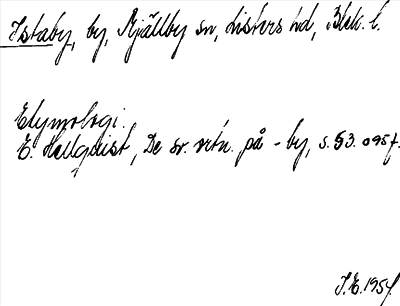 Istaby, by, Mjällby sn, Listers hd, Blek. l.
Etymologi.
E. Hellquist, De sv. ortn. på -by, s. 53. 1954.
J.E. 1954